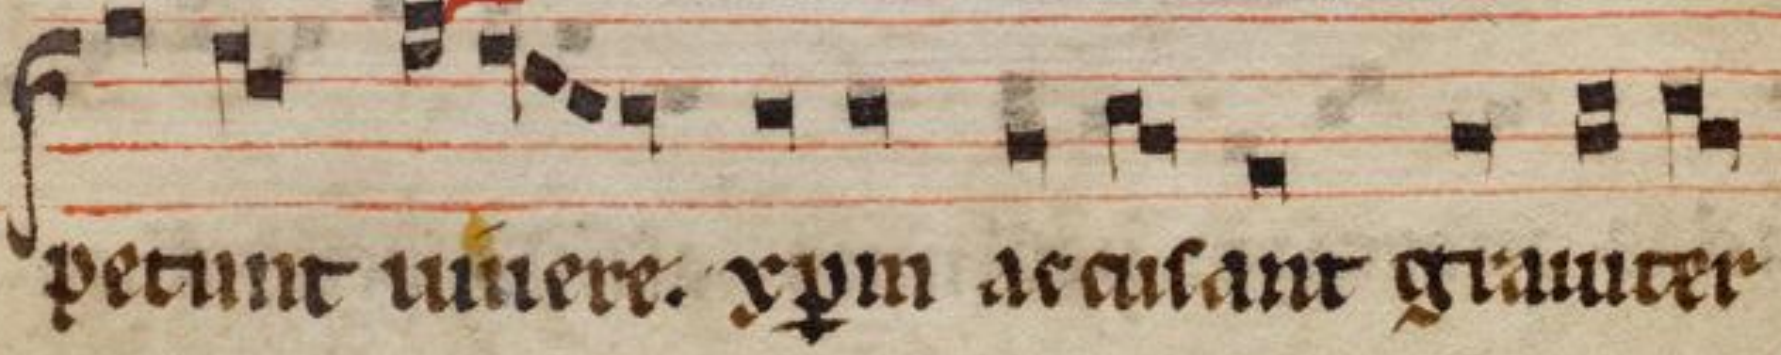 petunt uiuere. xp̄m accusant grauiter